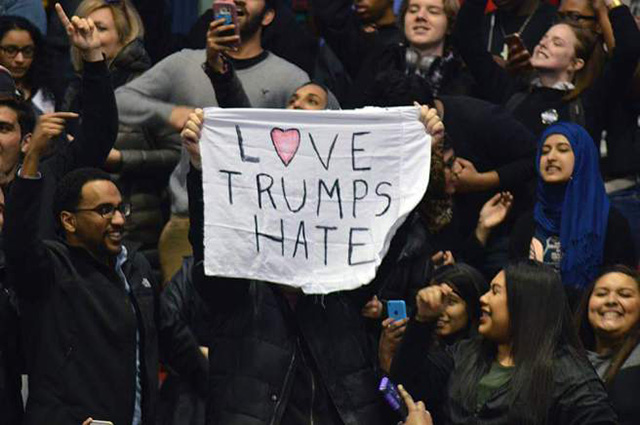 L VE
TRUMPS
HATE